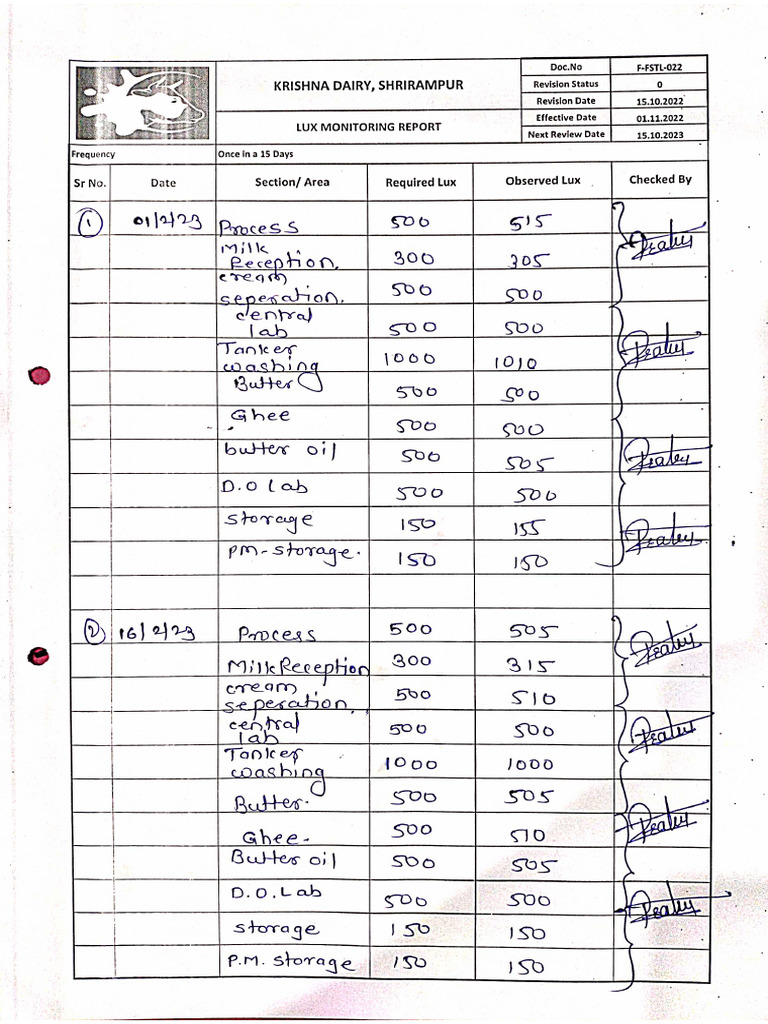 KRISHNA DAIRY, SHRIRAMPUR
LUX MONITORING REPORT
Doc.No F-FSTL-022
Revision Status 0
Revision Date 15.10.2022
Effective Date 01.11.2022
Next Review Date 15.10.2023
Frequency Once in a 15 Days
Sr No. Date Section/ Area Required Lux Observed Lux Checked By
1 01/2/23 Process 500 515
Milk
Reception. 300 305
cream
seperation. 500 500
central
lab 500 500
Tanker
washing 1000 1010
Butter 500 500
Ghee 500 500
butter oil 500 505
D.O Lab 500 500
storage 150 155
PM-storage. 150 150
2 16/2/23 Process 500 505
Milk Reception 300 315
cream
seperation. 500 510
central
lab 500 500
Tanker
washing 1000 1000
Butter. 500 505
Ghee- 500 510
Butter oil 500 505
D.O. Lab 500 500
storage 150 150
P.M. storage 150 150